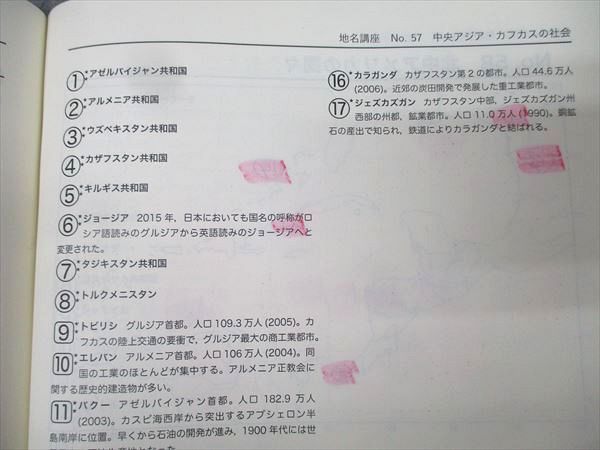 地名講座 No. 57 中央アジア・カフカスの社会
① アゼルバイジャン共和国
② アルメニア共和国
③ ウズベキスタン共和国
④ カザフスタン共和国
⑤ キルギス共和国
⑥ ジョージア 2015年，日本においても国名の呼称がロ
シア語読みのグルジアから英語読みのジョージアへと
変更された。
⑦ タジキスタン共和国
⑧ トルクメニスタン
9 トビリシ グルジア首都。人口109.3万人(2005)。カ
フカスの陸上交通の要衝で，グルジア最大の商工業都市。
10 エレバン アルメニア首都。人口106万人(2004)。同
国の工業のほとんどが集中する。アルメニア正教会に
関する歴史的建造物が多い。
11 バクー アゼルバイジャン首都。人口182.9万人
(2003)。カスピ海西岸から突出するアプシェロン半
島南岸に位置。早くから石油の開発が進み，1900年代には世
⑯ カラガンダ カザフスタン第2の都市。人口44.6万人
(2006)。近郊の炭田開発で発展した重工業都市。
⑰ ジェズカズガン カザフスタン中部，ジェズカズガン州
西部の州都，鉱業都市。人口11.0万人(1990)。銅鉱
石の産出で知られ，鉄道によりカラガンダと結ばれる。